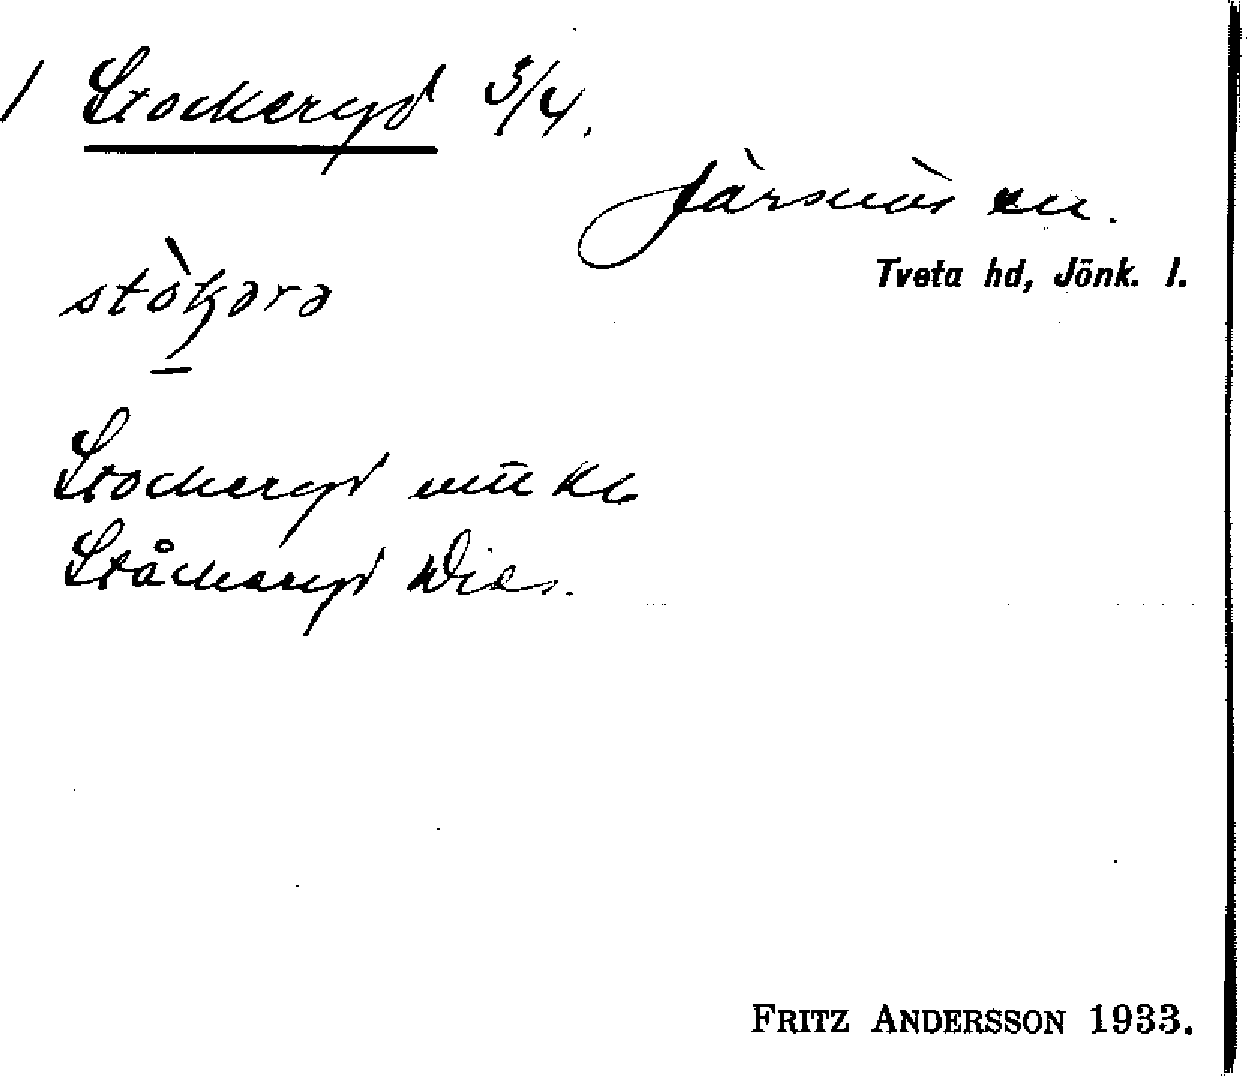 1 Stockeryd 3/4.
Järsnäs sn.
Tveta hd, Jönk. l.
stòkərə
Stockeryd
Ståckeryd Wies.
FRITZ ANDERSSON 1933.